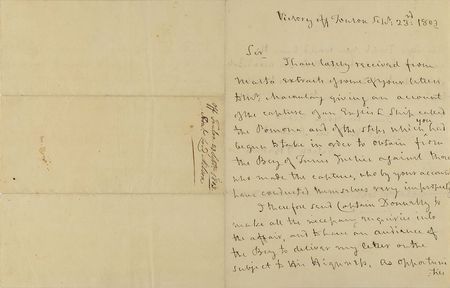 Victory off Toulon Septr. 23rd. 1803
Sir
I have lately received from
Malta extracts of some of your letters
to Mr. Macaulay giving an account
of the capture of an English Ship called
the Pomona and of the steps which you had
begun to take in order to obtain from
the Bey of Tunis Justice against those
who made the capture, who by your account
have conducted themselves very improperly
I therefore send Captain Donnelly to
make all the necessary enquiries into
the affair, and to have an audience of
the Bey to deliver my letter on the
subject to His Highness, As opportuni
ties
off Toulon 23 Septr. 1803
Lord Nelson